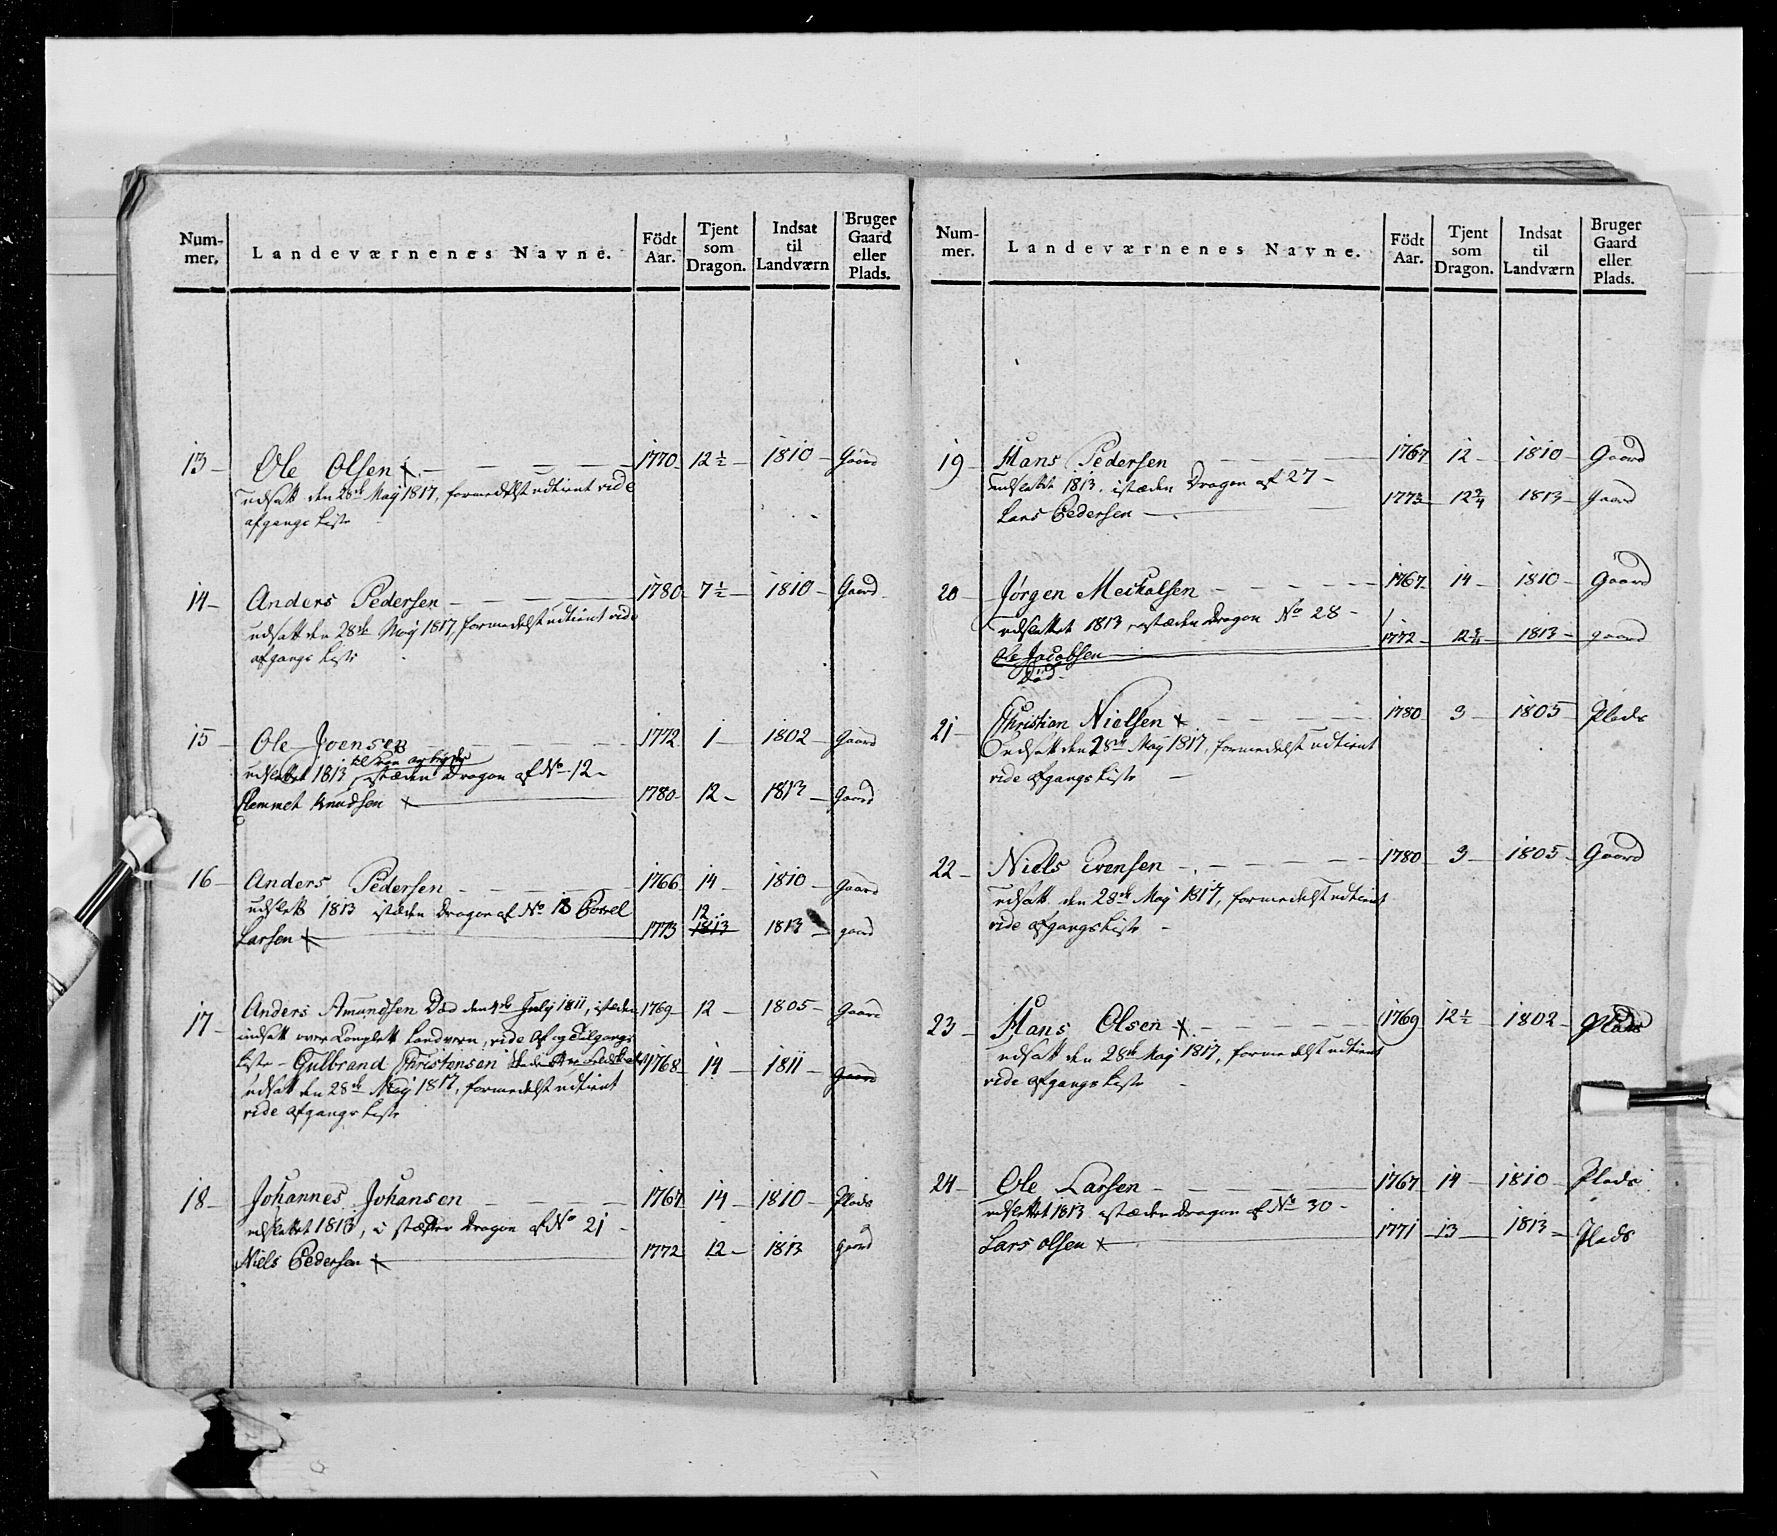 Num-
mer.
Landeværnenes Navne.
Födt
Aar.
Tjent
som
Dragon.
Indsat
til
Landværn
Bruger
Gaard
eller
Plads.
13 - Ole Olsen x - 1770 - 12 1/2 - 1810 - Gaard
udsatt den 28de Maÿ 1817, formedelst udtient vide
afgangs Liste
14 - Anders Pedersen - 1780 - 7 1/2 - 1810 - Gaard
udsatt den 28de Maÿ 1817, formedelst udtient vide
afgangs Liste
15 - Ole Joensen - 1772 - 1 - 1802 - Gaard
udslettet 1813, istæden Dragon af No 12 -
Hemmet Knudsen x - 1780 - 12 - 1813 - Gaard
16 - Anders Pedersen - 1766 - 14 - 1810 - Gaard
udslett 1813 istæden Dragon af No 18 Povel
Larsen x - 1773 - 12 1813 - 1813 - gaard
17 - Anders Amundsen Død den 4de Julÿ 1811, istæden 1769 - 12 - 1805 - Gaard
indsatt over Complett Landvern, vide Af og Tilgangs
Liste - Gulbrand Christensen 1768 - 14 - 1811 - Gaard
udsatt den 28de Maÿ 1817, formedelst udtient
vide afgangs Liste
18 - Johannes Johansen - 1767 - 14 - 1810 - Plads
udslettet 1813, i stæden Dragon af No 21 -
Niels Pedersen x - 1772 - 12 - 1813 gaard
Num-
mer.
Landeværnenes Navne.
Födt
Aar.
Tjent
som
Dragon.
Indsat
til
Landværn
Bruger
Gaard
eller
Plads.
19 - Hans Pedersen - 1767 - 12 - 1810 - Gaard
udslettet 1813. istæden Dragon af 27 -
Lars Pedersen - 1773 - 12 3/4 1813 - Gaard
20 - Jørgen Meckalsen - 1767 - 14 - 1810 - Gaard
udslettet 1813, istæden Dragon No 28 -
Ole Jacobsen - 1772 - 12 3/4 - 1813 - gaard
Død -
21 - Christian Nielsen x - 1780 - 3 - 1805 - Plads
udsatt den 28de Maÿ 1817, formedelst udtient
vide afgangs Liste -
22 - Niels Evensen - 1780 - 3 - 1805 - Gaard
udsatt den 28de Maÿ 1817, formedelst udtient
vide afgangs Liste -
23 - Hans Olsen x - 1769 12 1/2 - 1802 - Plads
udsatt den 28de Maÿ 1817, formedelst udtient
vide afgangs Liste -
24 - Ole Larsen - 1767 - 14 - 1810 - Plads
udslettet 1813 istæden Dragon af No 30 -
Lars olsen x - 1771 - 13 - 1813 - Plads